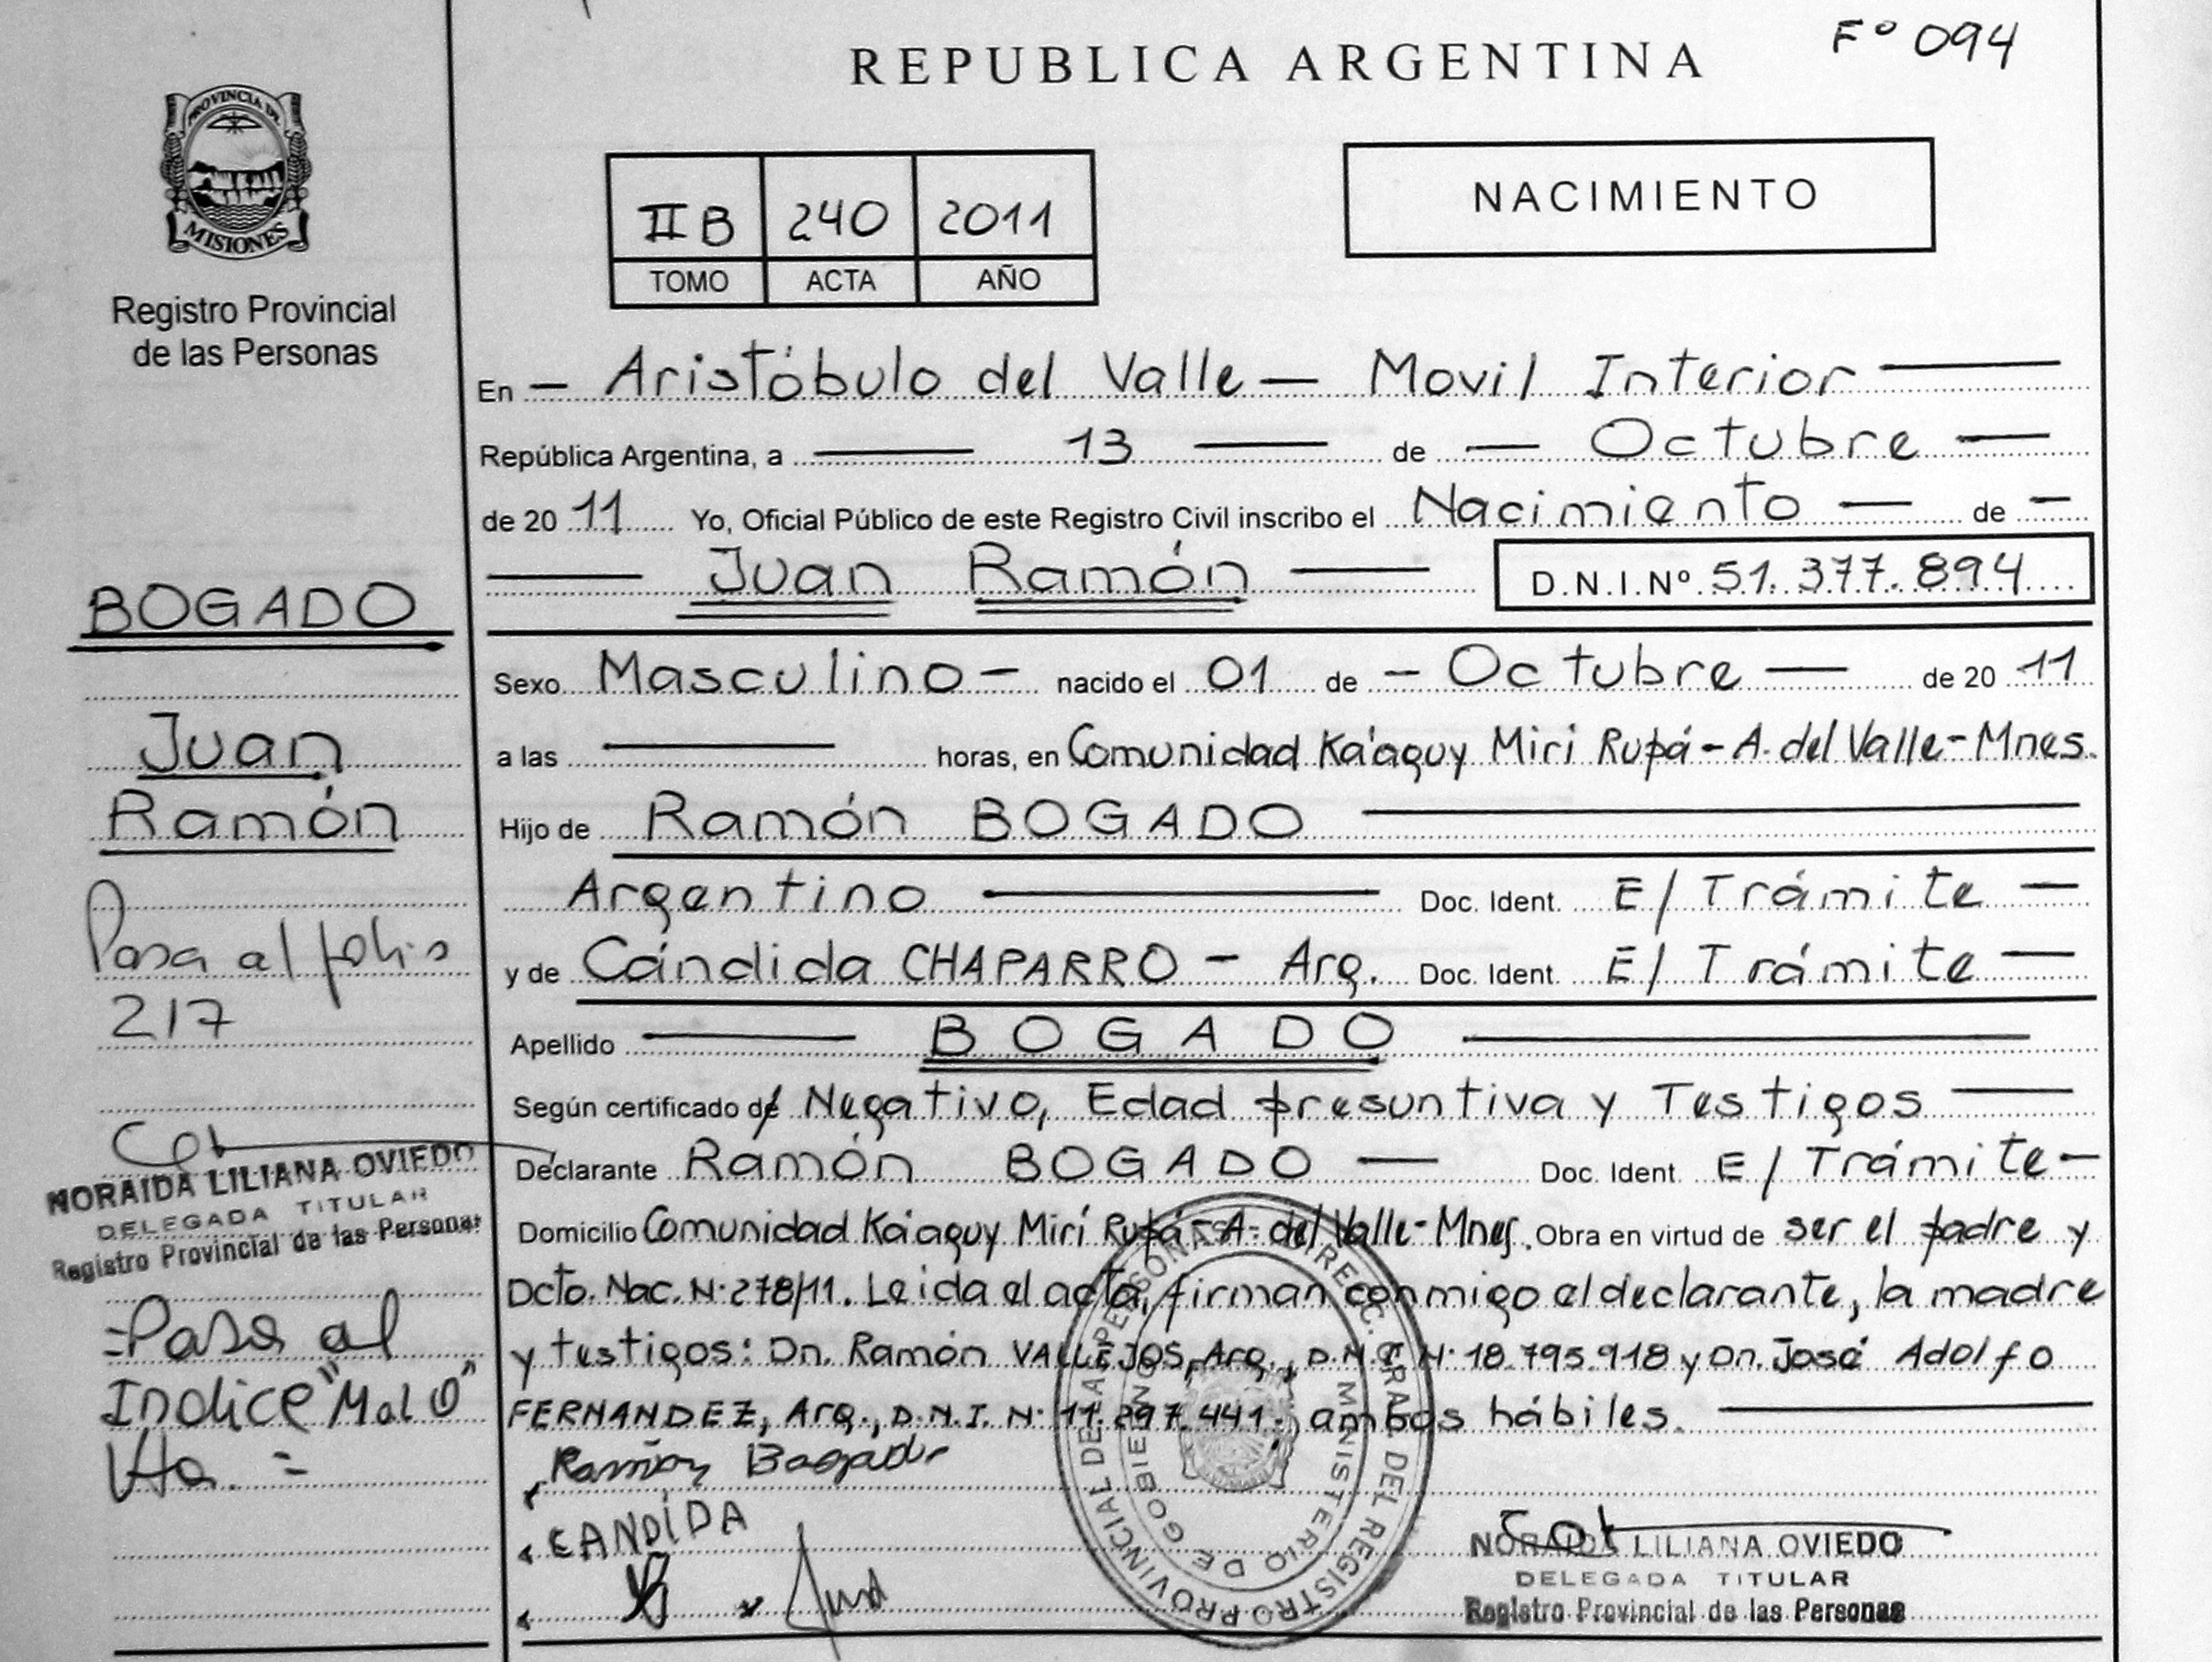 F° 094
REPUBLICA ARGENTINA
PROVINCIA DE
MISIONES
Registro Provincial
de las Personas
II B 240 2011
TOMO ACTA AÑO
NACIMIENTO
En — Aristóbulo del Valle — Movil Interior —
República Argentina, a — 13 — de — Octubre —
de 20 11 Yo, Oficial Público de este Registro Civil inscribo el Nacimiento — de —
— Juan Ramón — D.N.I.Nº 51.377.894
BOGADO
Juan
Ramón
Pasa al folio
217
NORAIDA LILIANA OVIEDO
DELEGADA TITULAR
Registro Provincial de las Personas
=Pasa al
Indice "Mal O"
Vta. =
Sexo Masculino — nacido el 01 de — Octubre — de 20 11
a las — horas, en Comunidad Ka'aguy Miri Rupá - A. del Valle - Mnes.
Hijo de Ramón BOGADO —
Argentino — Doc. Ident. E/ Trámite —
y de Cándida CHAPARRO — Arg. Doc. Ident. E/ Trámite —
Apellido — BOGADO —
Según certificado de Negativo, Edad presuntiva y Testigos —
Declarante Ramón BOGADO — Doc. Ident. E/ Trámite —
Domicilio Comunidad Ka'aguy Mirí Rupá - A. del Valle - Mnes. Obra en virtud de ser el padre y
Dcto. Nac. N· 278/11. Leida el acta, firman conmigo el declarante, la madre
y testigos: Dn. Ramón VALLEJOS, Arg., D.N.I. N· 18.795.918 y Dn. José Adolfo
FERNANDEZ, Arg., D.N.I. N· 11.297.441., ambos hábiles. —
Ramón Bogado
CANDÍDA
DIRECC. GRAL DEL REGISTRO PROVINCIAL DE LAS PERSONAS
MINISTERIO DE GOBIERNO
NORAIDA LILIANA OVIEDO
DELEGADA TITULAR
Registro Provincial de las Personas